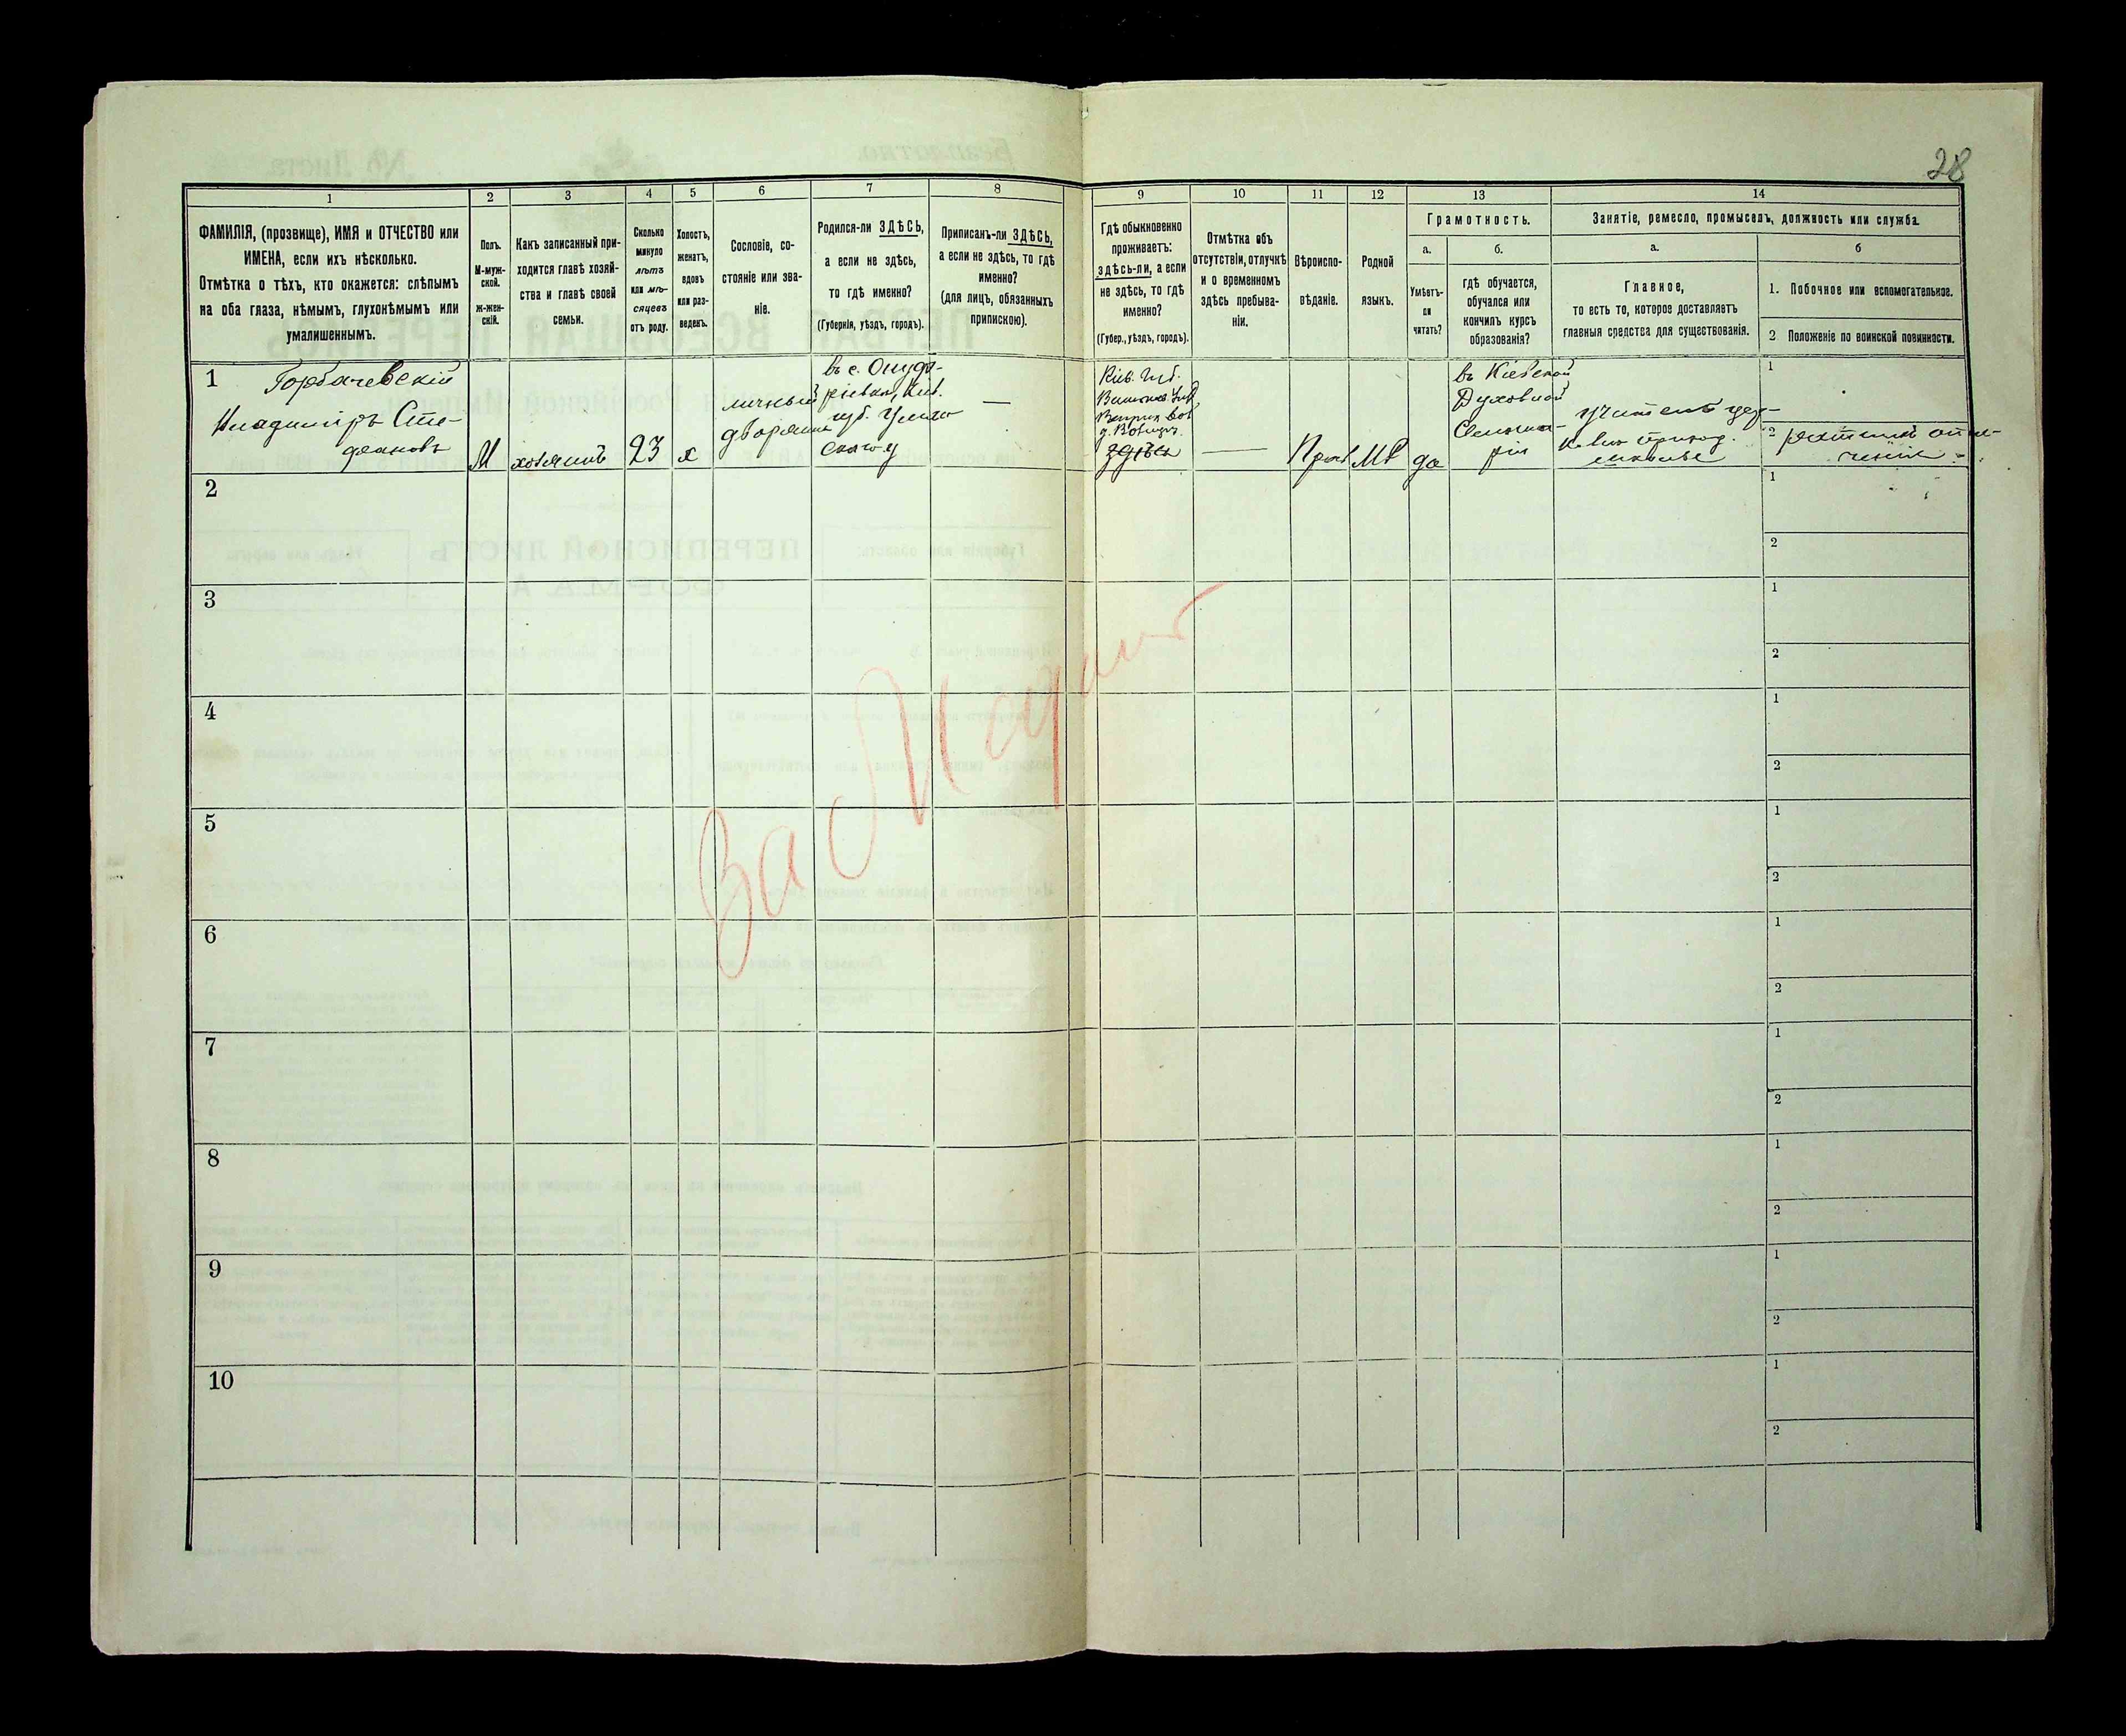 28
1 2 3 4 5 6 7 8 9 10 11 12 13 14
ФАМИЛІЯ, (прозвище), ИМЯ и ОТЧЕСТВО или
ИМЕНА, если ихъ нѣсколько.
Отмѣтка о тѣхъ, кто окажется: слѣпымъ
на оба глаза, нѣмымъ, глухонѣмымъ или
умалишеннымъ.
Полъ.
М-муж-
ской.
ж-жен-
скій.
Какъ записанный при-
ходится главѣ хозяй-
ства и главѣ своей
семьи.
Сколько
минуло
лѣтъ
или мѣ-
сяцевъ
отъ роду.
Холостъ,
женатъ,
вдовъ
или раз-
веденъ.
Сословіе, со-
стояніе или зва-
ніе.
Родился-ли ЗДѢСЬ,
а если не здѣсь,
то гдѣ именно?
(Губернія, уѣздъ, городъ).
Приписанъ-ли ЗДѢСЬ,
а если не здѣсь, то гдѣ
именно?
(для лицъ, обязанныхъ
припискою).
Гдѣ обыкновенно
проживаетъ:
здѣсь-ли, а если
не здѣсь, то гдѣ
именно?
(Губер., уѣздъ, городъ).
Отмѣтка объ
отсутствіи, отлучкѣ
и о временномъ
здѣсь пребыва-
ніи.
Вѣроиспо-
вѣданіе.
Родной
языкъ.
Грамотность.
а.
Умѣетъ-
ли
читать?
б.
гдѣ обучается,
обучался или
кончилъ курсъ
образованія?
Занятіе, ремесло, промыселъ, должность или служба.
а.
Главное,
то есть то, которое доставляетъ
главныя средства для существованія.
б
1. Побочное или вспомогательное.
2 Положеніе по воинской повинности.
1 Горбачевскій
Владиміръ Сте-
фановъ
М
хозяинъ
23
х
личный
дворянинъ
въ с.
губ.
—
Кіев. губ.
здѣсь
—
Прав
МР
да
въ Кіевской
Духовной
Семина-
ріи
учитель цер-
ковно приход.
школы
1
2 ратникъ опол-
ченія
2
1
2
3
1
2
4
1
2
5
1
2
6
1
2
7
1
2
8
1
2
9
1
2
10
1
2